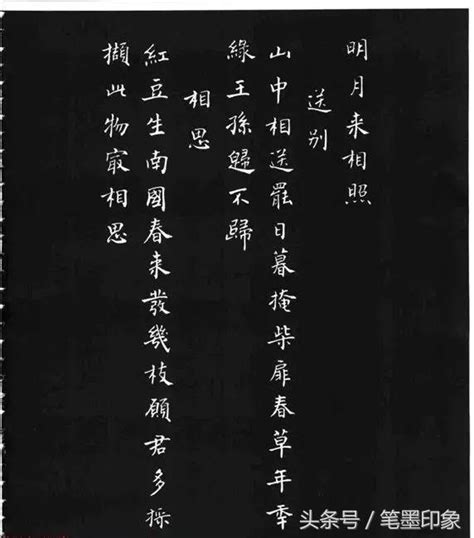 明月来相照
送别
山中相送罷日暮掩柴扉春草年秊
綠王孫歸不歸
相思
紅豆生南國春来發幾枝願君多採
擷此物冣相思
头条号／笔墨印象